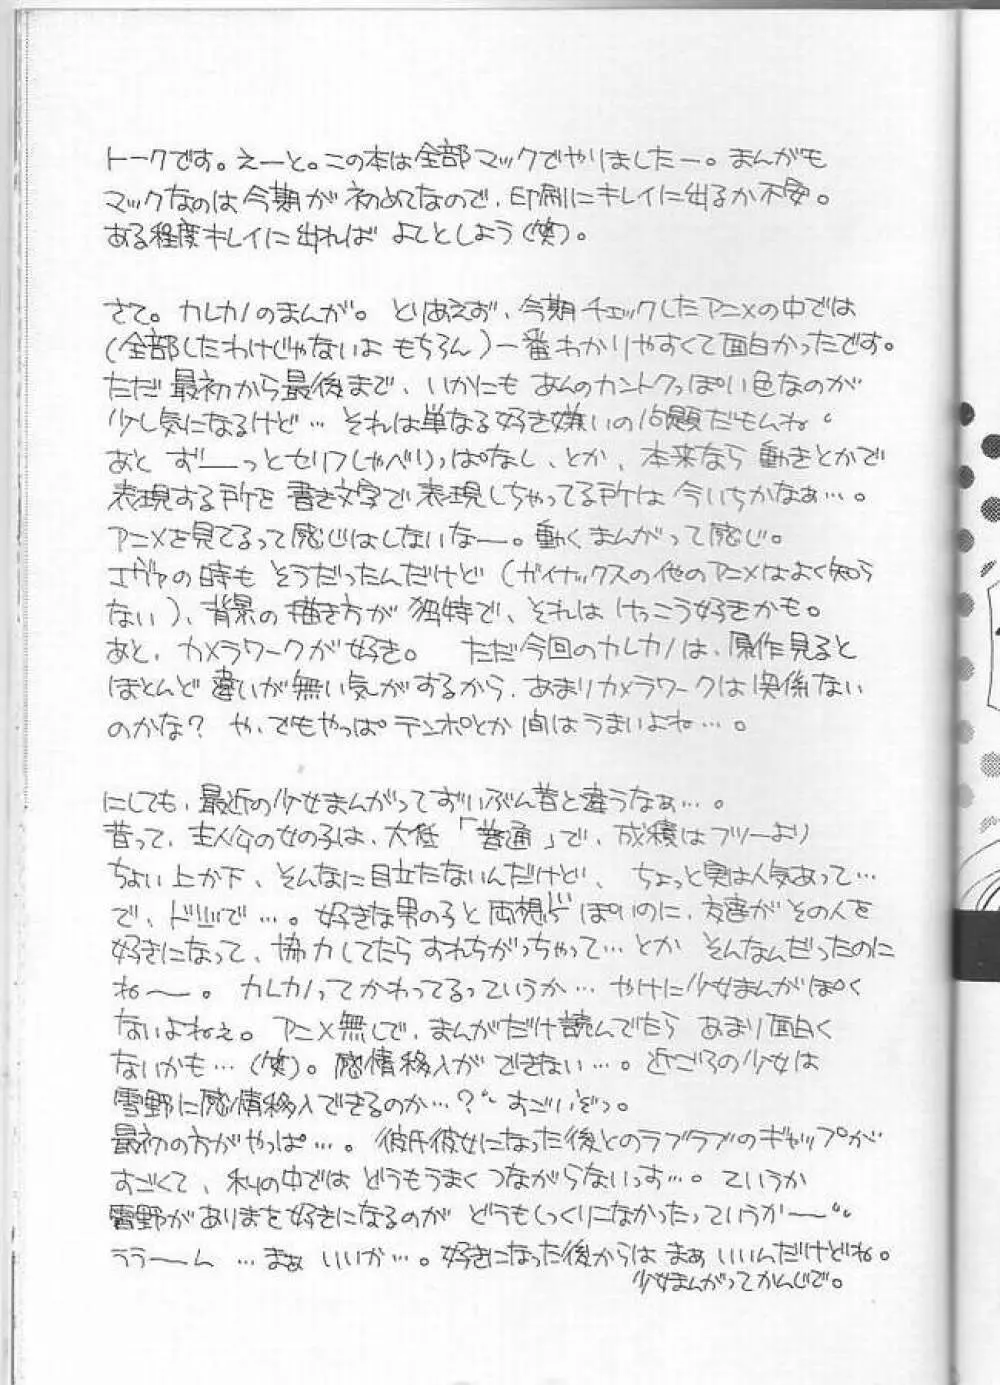 トークです。えーと。この本は全部マックでやりましたー。まんがも
マックなのは今期が初めてなので、印刷にキレイに出るか不安。
ある程度キレイに出ればよしとしよう(笑)。
さて。カレカノのまんが。とりあえず、今期チェックしたアニメの中では
(全部したわけじゃないよもちろん)一番わかりやすくて面白かったです。
ただ最初から最後まで、いかにもあんのカントクっぽい色なのが
少し気になるけど…それは単なる好き嫌いの問題だもんね。
あとずーーっとセリフしゃべりっぱなし、とか、本来なら動きとかで
表現する所を書き文字で表現しちゃってる所は今いちかなぁ…。
アニメを見てるって感じはしないなー。動くまんがって感じ。
エヴァの時もそうだったんだけど(ガイナックスの他のアニメはよく知ら
ない)、背景の描き方が独特で、それはけっこう好きかも。
あと、カメラワークが好き。ただ今回のカレカノは、原作見ると
ほとんど違いが無い気がするから、あまりカメラワークは関係ない
のかな?や、でもやっぱテンポとか間はうまいよね…。
にしても、最近の少女まんがってずいぶん昔と違うなぁ…。
昔って、主人公の女の子は、大抵「普通」で、成績はフツーより
ちょい上か下、そんなに目立たないんだけど、ちょっと実は人気あって…
で、ドジで…。好きな男の子と両想いっぽいのに、友達がその人を
好きになって、協力してたらすれちがっちゃって…とかそんなんだったのに
ね〜。カレカノってかわってるっていうか…やけに少女まんがぽく
ないよねぇ。アニメ無しで、まんがだけ読んでたらあまり面白く
ないかも…(笑)。感情移入ができない…。近ごろの少女は
雪野に感情移入できるのか…?すごいぞっ。
最初の方がやっぱ…。彼氏彼女になった後とのラブラブのギャップが
すごくて、私の中ではどうもうまくつながらないっす…。ていうか
雪野がありまを好きになるのがどうもしっくりこなかったっていうか〜
ううーん…まぁいいか…。好きになった後からはまぁいいんだけどね。
少女まんがってかんじで。